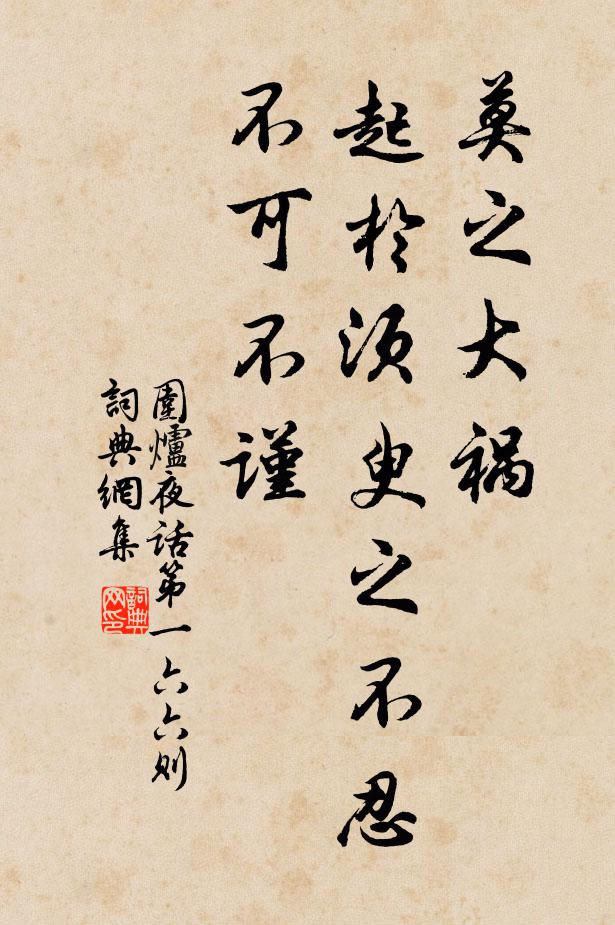 莫之大禍
起於須臾之不忍
不可不謹
圍爐夜話第一六六則
詞典網集
詞典
网印